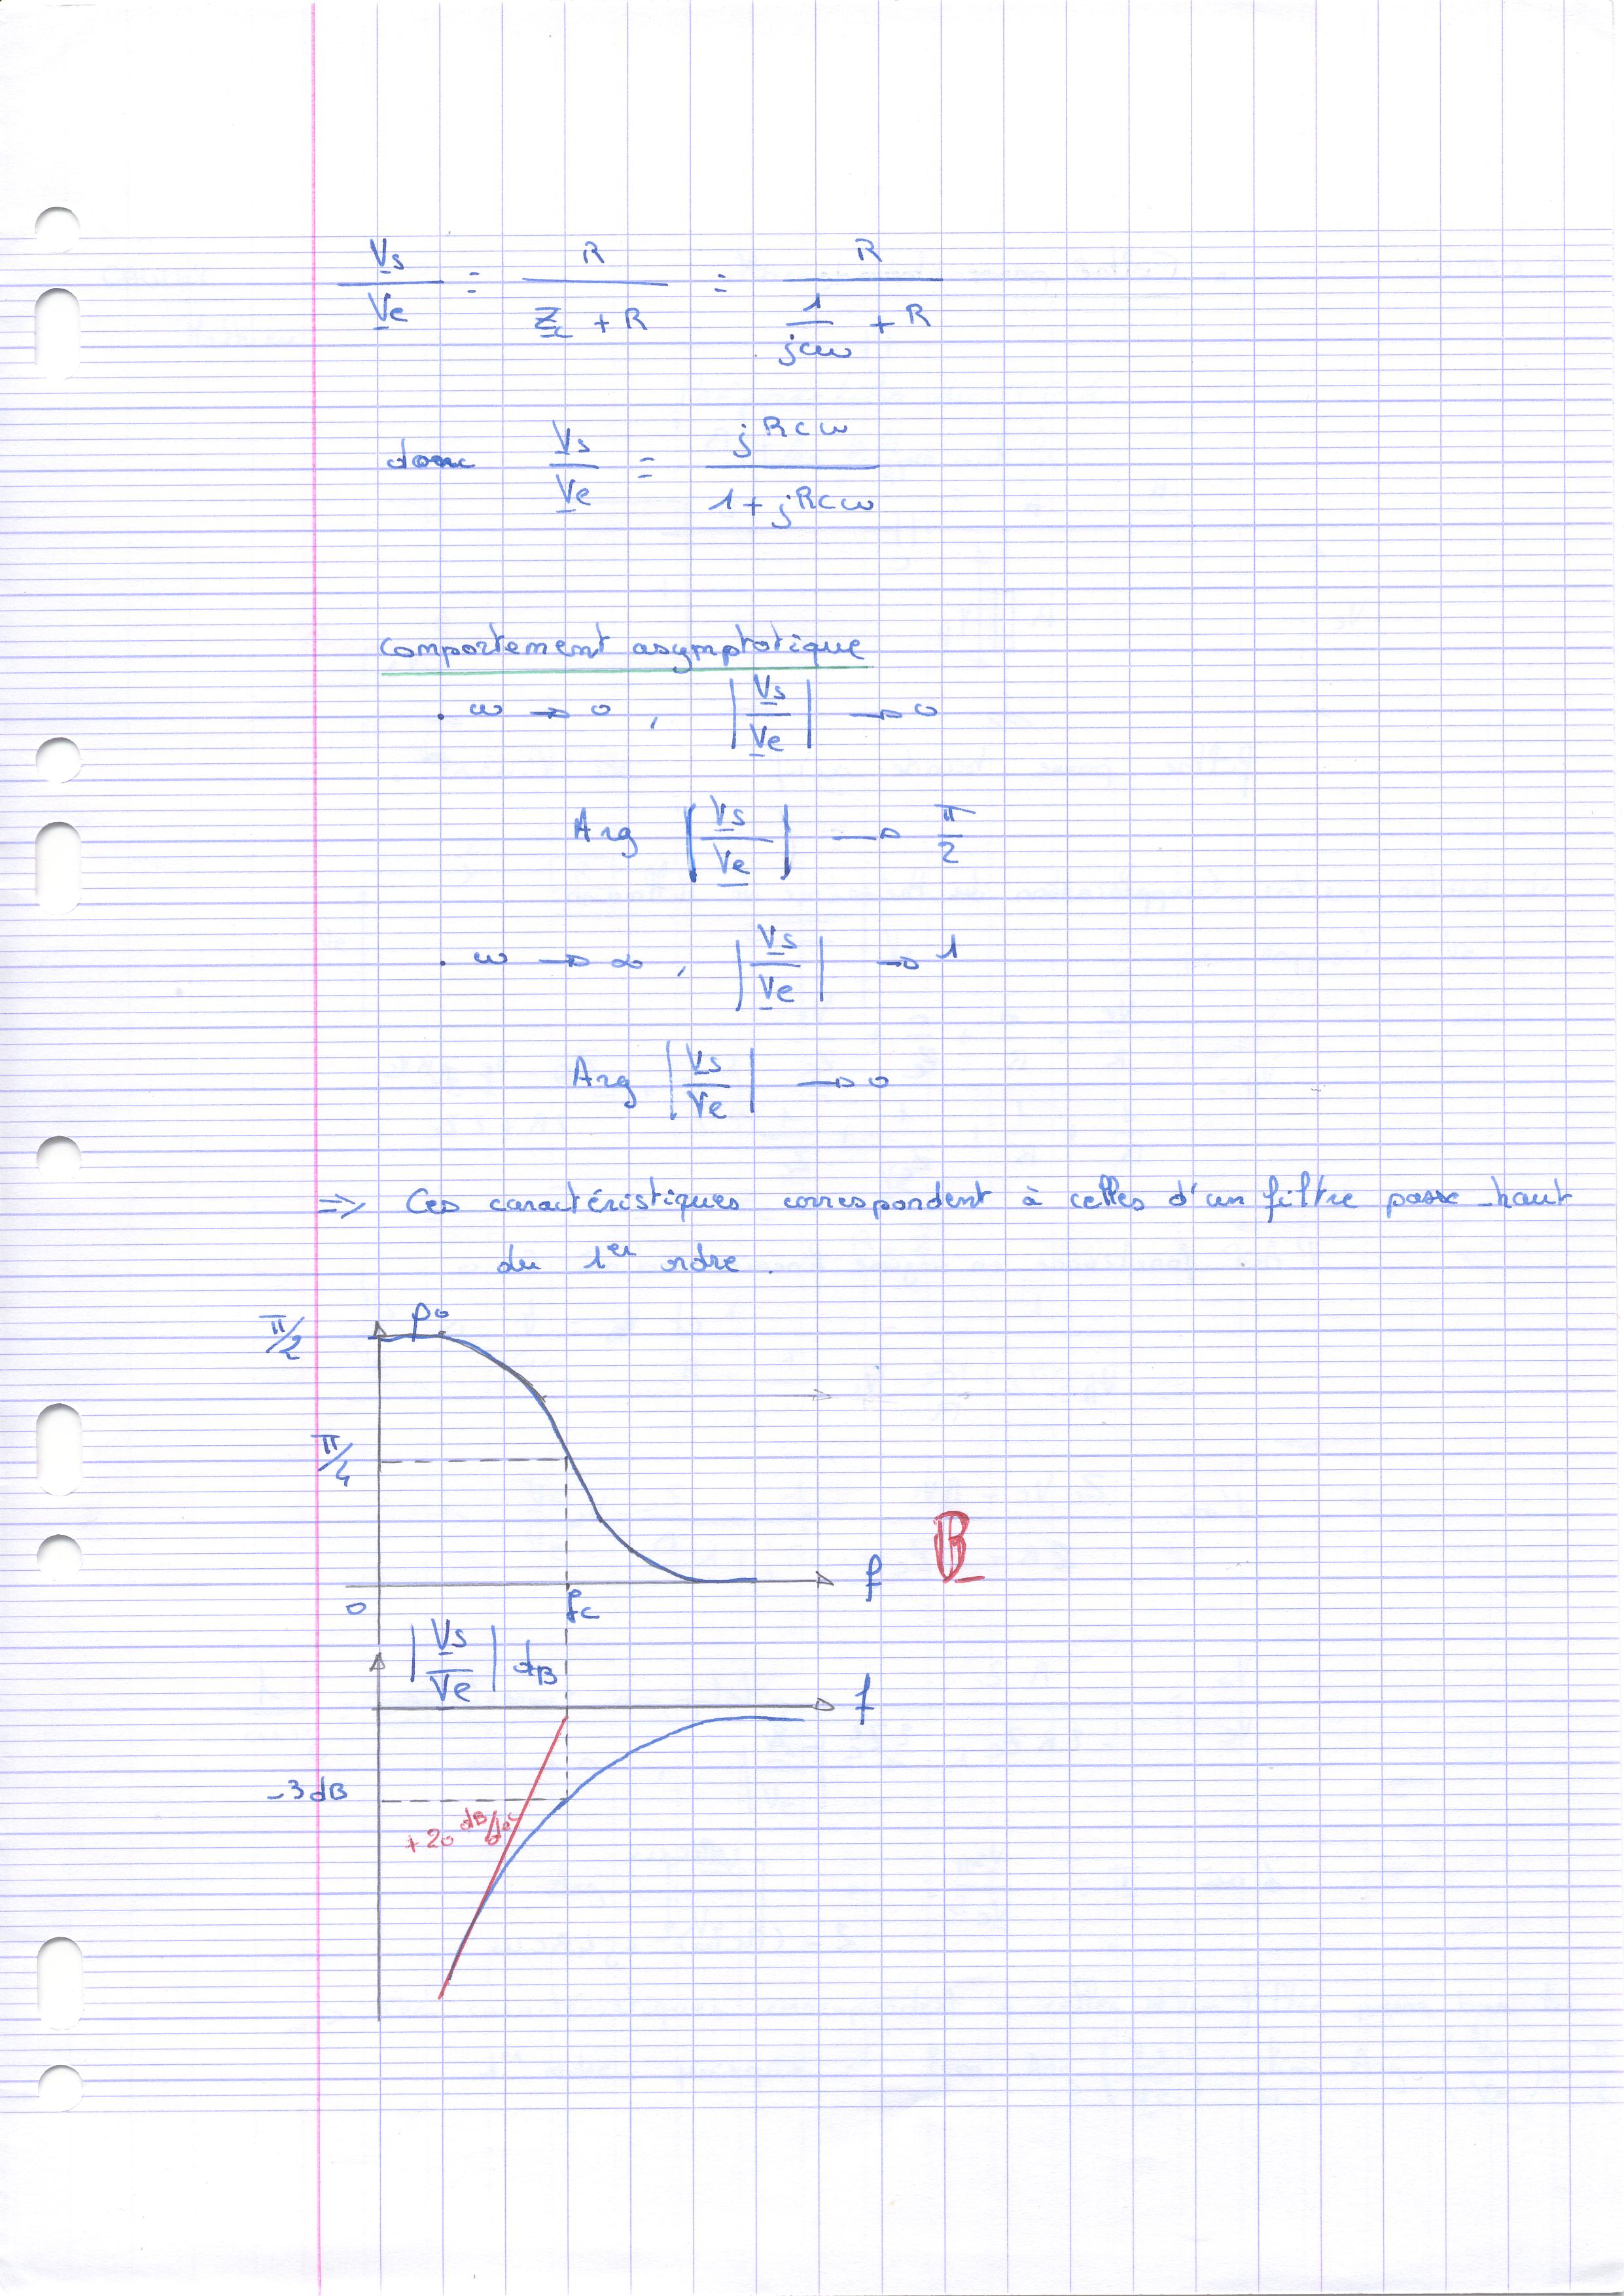 Vs/Ve = R/(Zc + R) = R/(1/jcω + R)
donc Vs/Ve = jRcω/(1 + jRcω)
comportement asymptotique
. ω → 0 , |Vs/Ve| → 0
Arg |Vs/Ve| → π/2
. ω → ∞ , |Vs/Ve| → 1
Arg |Vs/Ve| → 0
=> Ces caractéristiques correspondent à celles d'un filtre passe-haut
du 1er ordre.
π/2
π/4
B
0 fc f
|Vs/Ve| dB
f
-3dB
+20 dB/dec